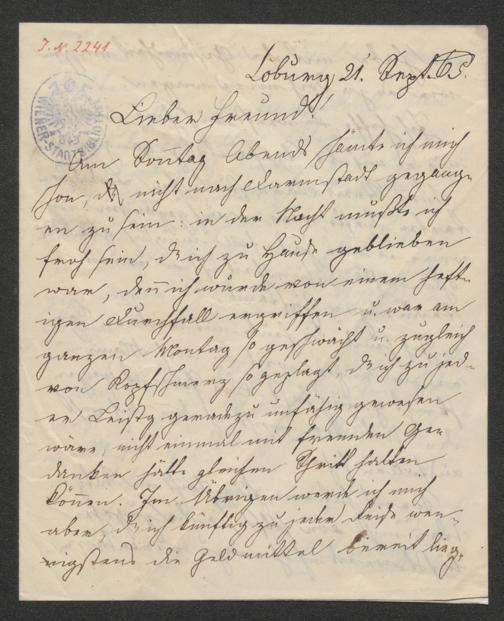 J. N. 2241
Coburg 21. Sept. 65.
Lieber Freund!
Am Sonntag Abends hatte ich mich
schon, nicht nach Darmstadt gegang-
en zu sein: in der Nacht mußte ich
froh sein, daß ich zu Hause geblieben
war, denn ich wurde von einem heft-
igen Durchfall ergriffen u. war am
ganzen Montag so geschwächt u. zugleich
von Kopfschmerz so geplagt, daß ich zu jed-
er Leistg geradezu unfähig gewesen
wäre, nicht einmal mit fremden Ge-
danken hätte gleichen Schritt halten
können. Im Übrigen werde ich mich
aber, daß ich künftig zu jeder Reise wen-
nigstens die Geldmittel bereit lieg-